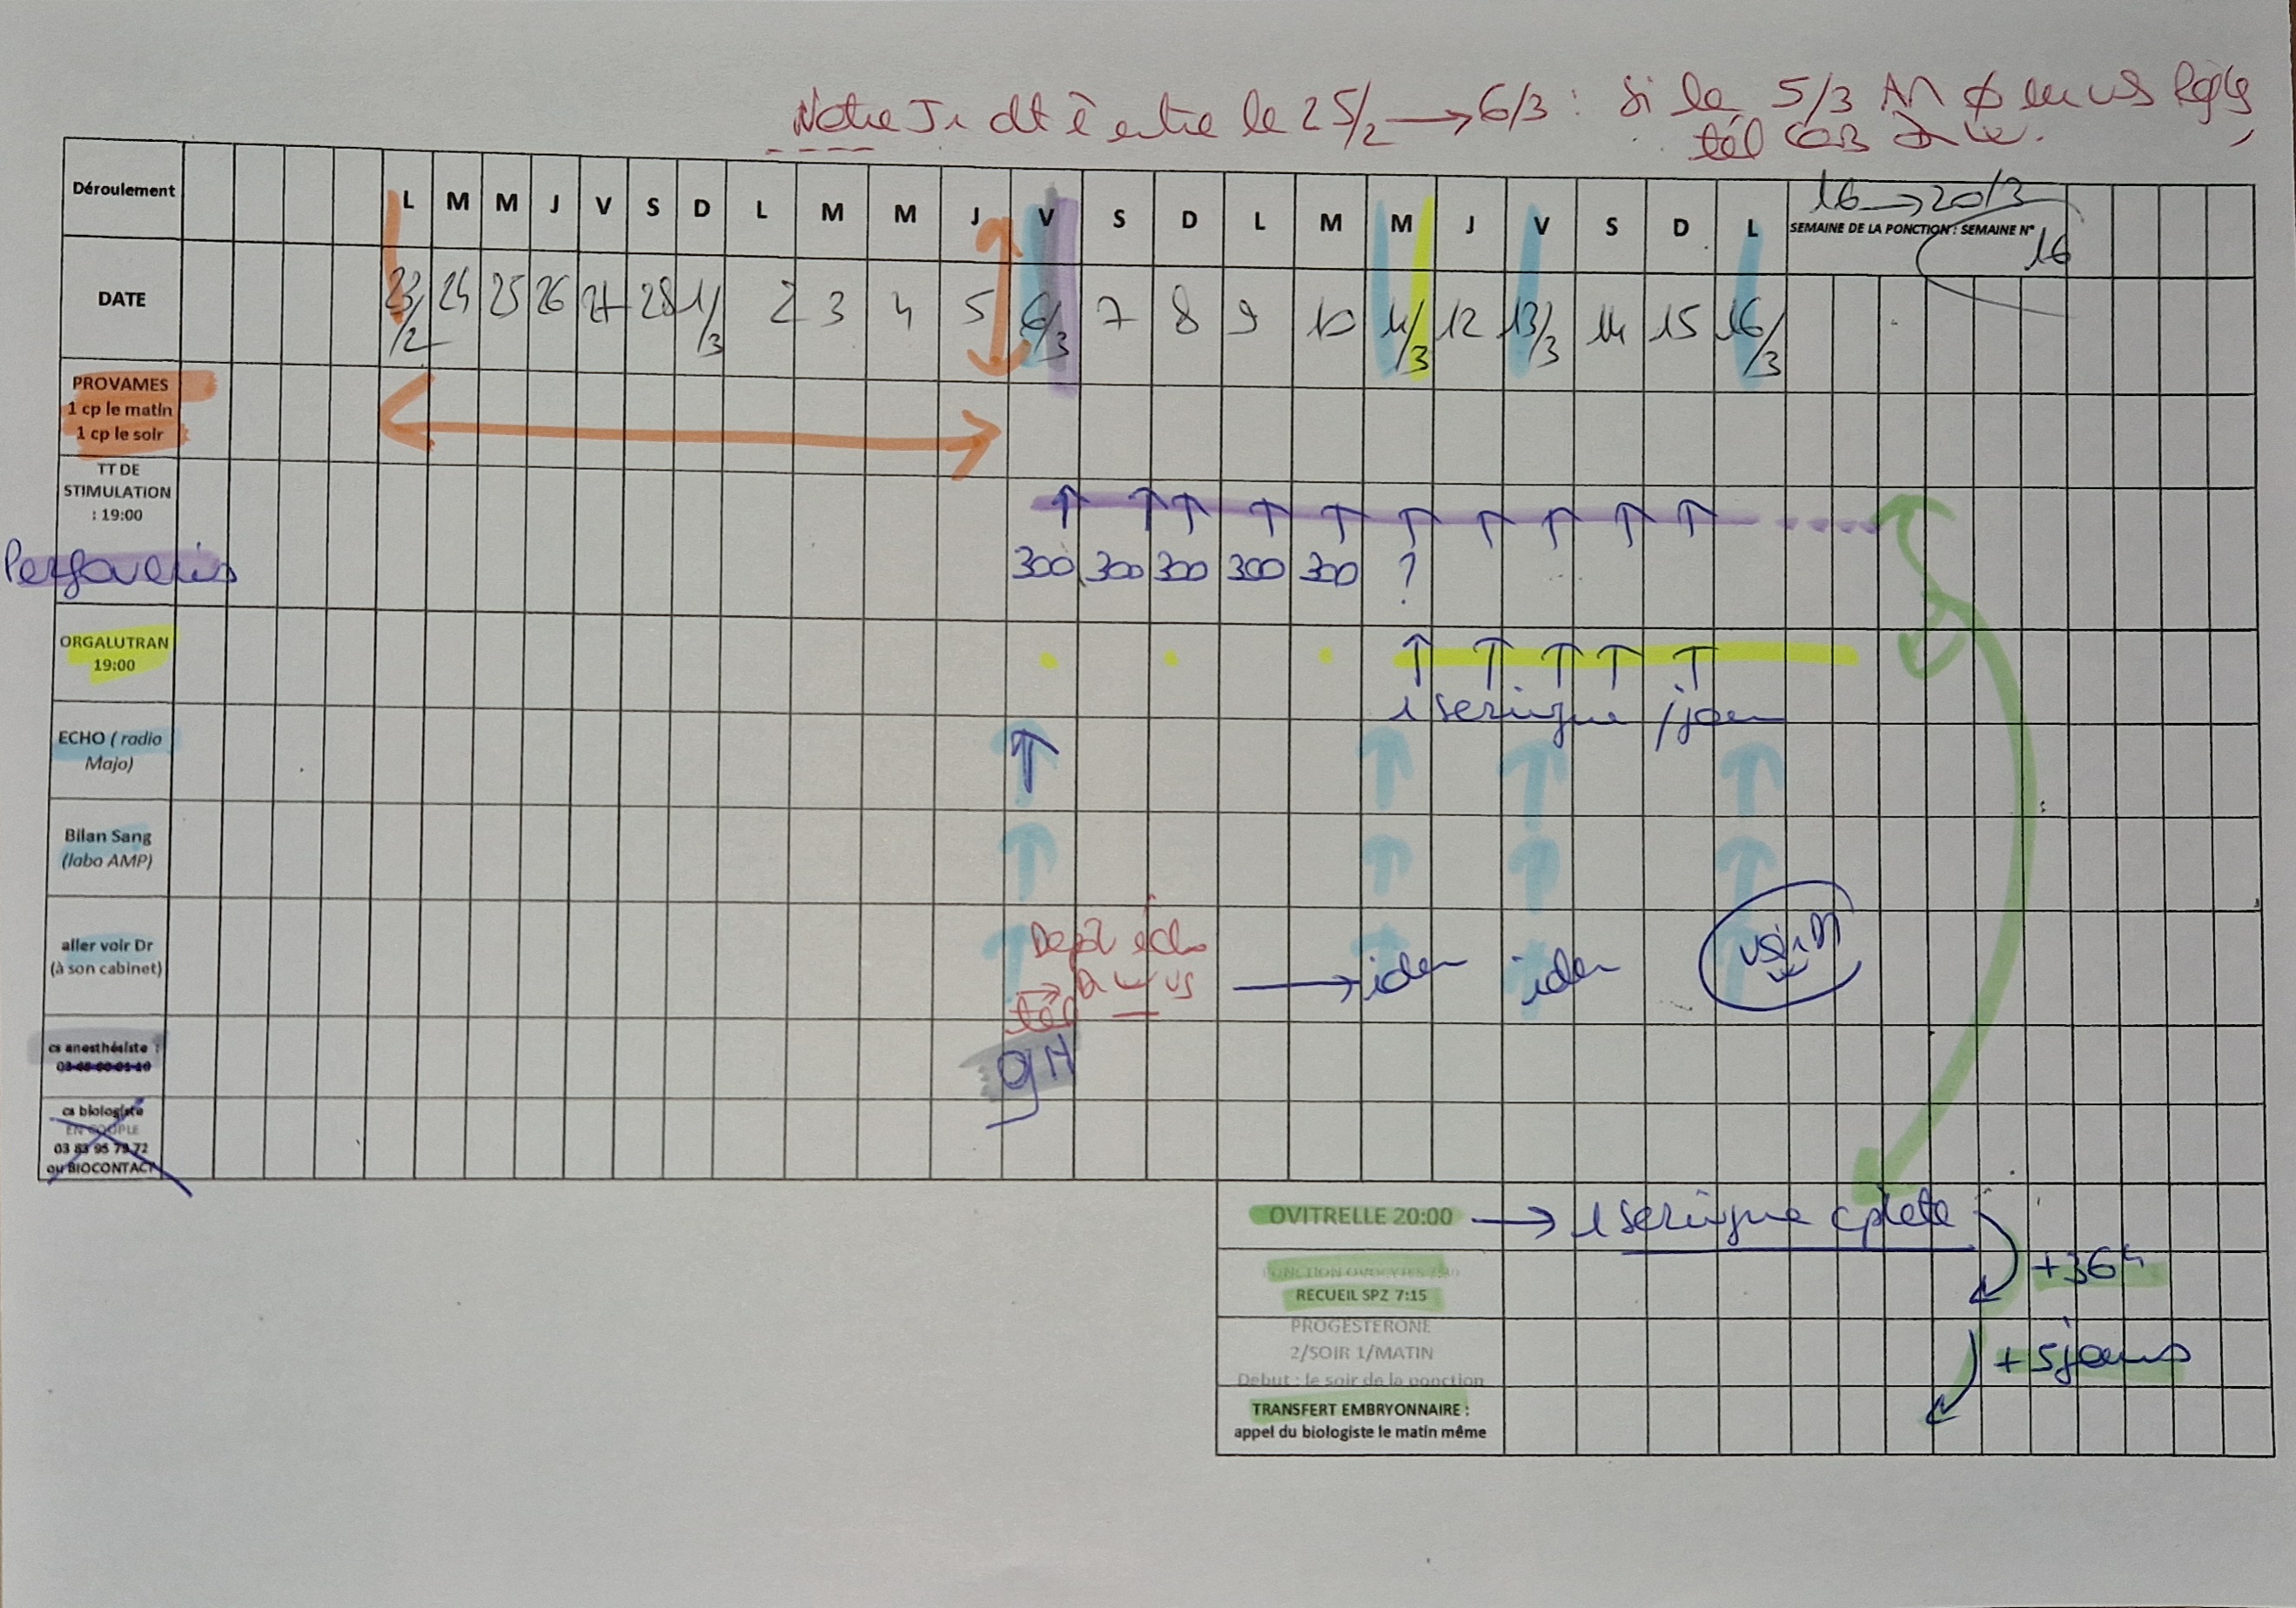 Notre J1 dt ê entre le 25/2 → 6/3 : si le 5/3 AM ø eu vs Règles
tél
Déroulement L M M J V S D L M M J V S D L M M J V S D L
16 → 20/3
SEMAINE DE LA PONCTION : SEMAINE N°
16
DATE 23/2 24 25 26 27 28 1/3 2 3 4 5 6/3 7 8 9 10 11/3 12 13/3 14 15 16/3
PROVAMES
1 cp le matin
1 cp le soir
TT DE
STIMULATION
: 19:00
↑ ↑ ↑ ↑ ↑ ↑ ↑ ↑ ↑ ↑
Pergoveris 300 300 300 300 300 ?
ORGALUTRAN
19:00
↑ ↑ ↑ ↑ ↑
1 seringue / jour
ECHO ( radio
Majo)
↑ ↑ ↑ ↑
Bilan Sang
(labo AMP)
↑ ↑ ↑ ↑
aller voir Dr
(à son cabinet)
Depôt écho
→ Dr vs
tél
→ idem idem
cs anesthésiste :
9H
cs biologiste
EN COUPLE
03 83 95 79 72
ou BIOCONTACT
OVITRELLE 20:00 → 1 seringue cplète
+36h
PONCTION OVOCYTES
RECUEIL SPZ 7:15
PROGESTERONE
2/SOIR 1/MATIN
Debut : le soir de la ponction
+ 5 jours
TRANSFERT EMBRYONNAIRE :
appel du biologiste le matin même